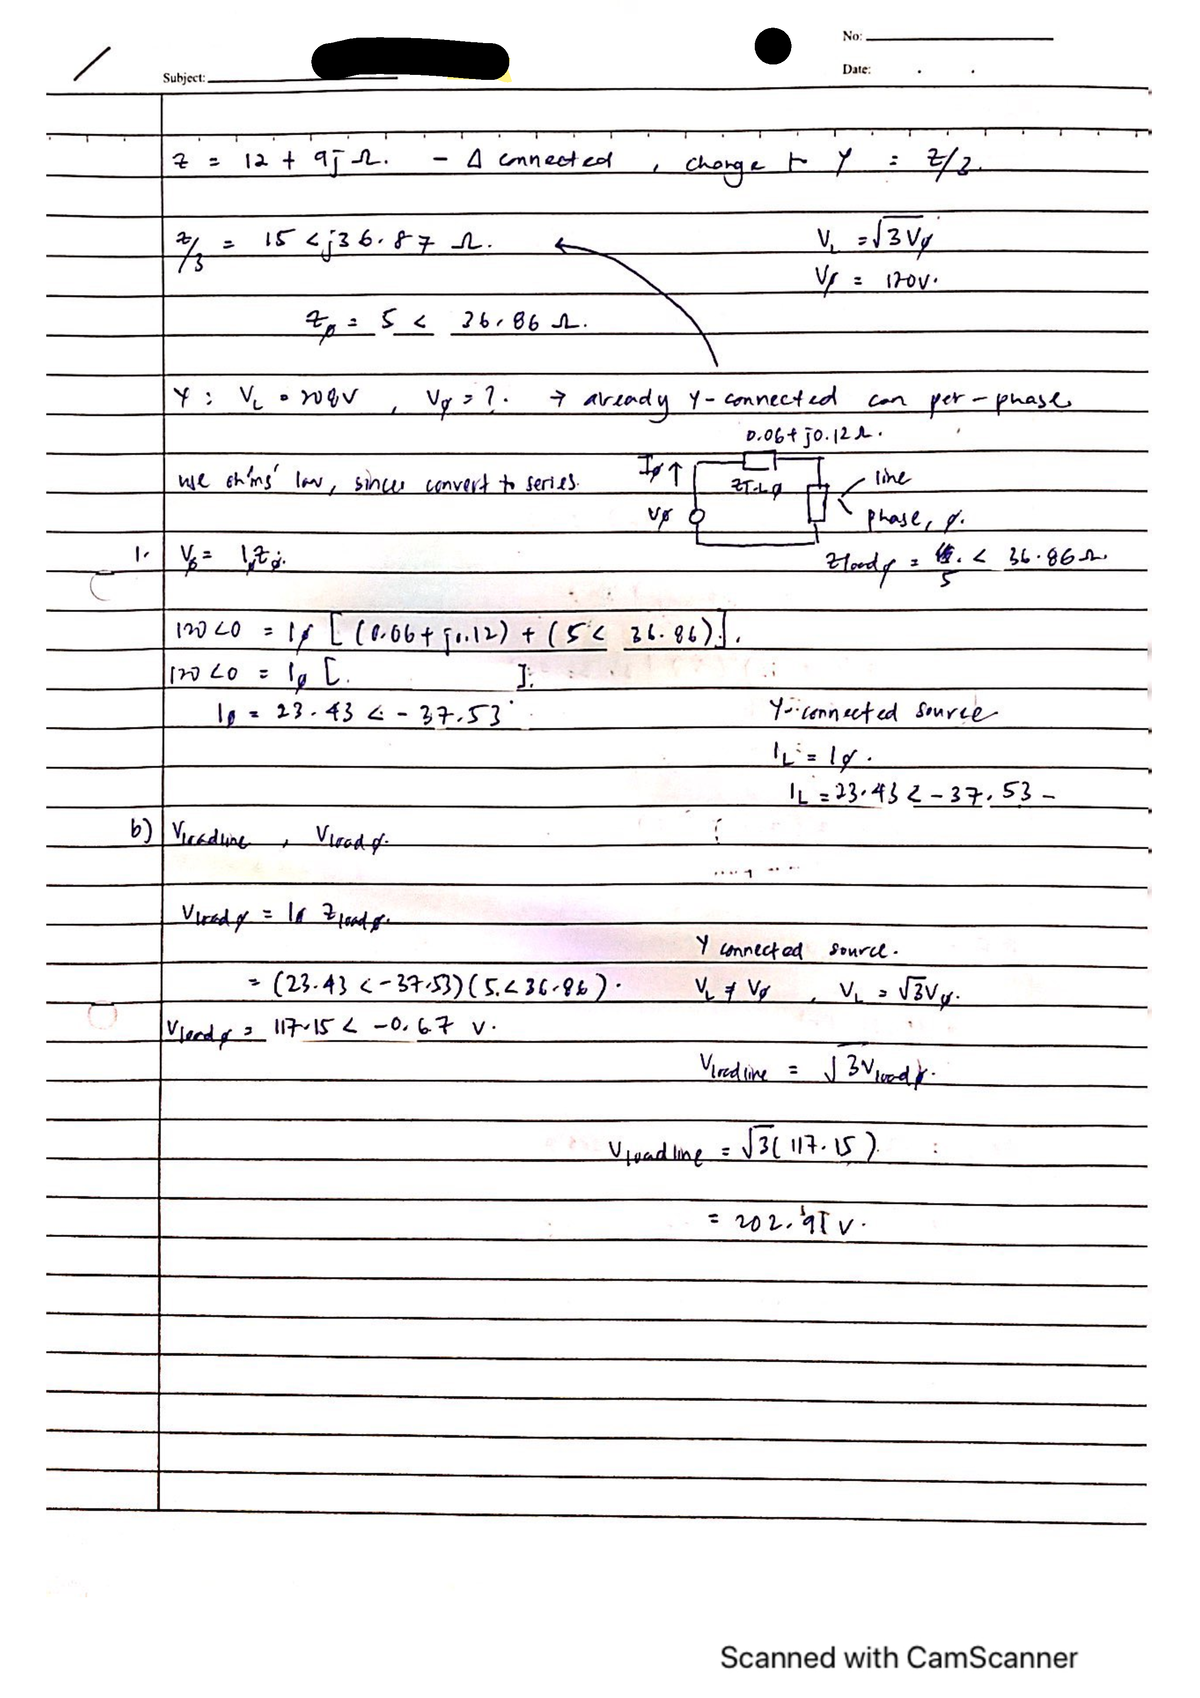 No:
Subject:
Date: . .
Z = 12 + 9j Ω. - Δ connected, change to Y = Z/3.
Z/3 = 15 < j36.87 Ω.
V_L = √3 Vø
Vø = 120V.
Zø = 5 < 36.86 Ω.
Y : V_L = 208V, Vø = ?. → already Y-connected can per-phase
0.06 + j0.12 Ω.
use ohms' law, since convert to series.
Iø ↑
ZT.Lø
line
Vø
phase, ø.
Zloadø = 5 < 36.86 Ω.
1. Vø = IøZø.
120 <0 = Iø [(0.06 + j0.12) + (5 < 36.86)].
120 <0 = Iø [. ].
Iø = 23.43 < - 37.53°.
Y-connected source
I_L = Iø.
I_L = 23.43 < - 37.53 -
b) Vloadline, Vloadø.
Vloadø = Iø Zloadø.
Y connected source.
= (23.43 < -37.53)(5 < 36.86).
V_L ≠ Vø, V_L = √3Vø.
Vloadø = 117.15 < -0.67 V.
Vloadline = √3Vloadø.
Vloadline = √3(117.15).
= 202.91 V.
Scanned with CamScanner